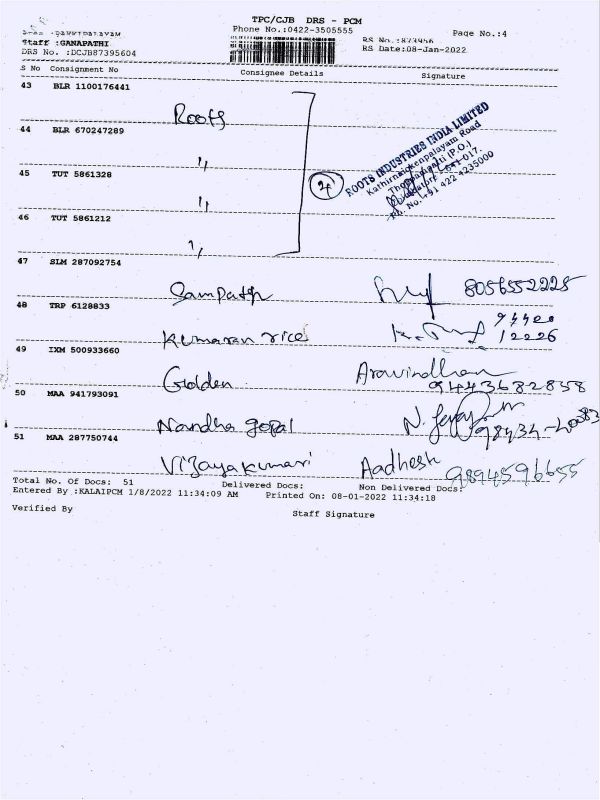 TPC/CJB DRS - PCM
Phone No.:0422-3505555
Page No.:4
Staff :GANAPATHI
DRS No. :DCJB87395604
RS Date:08-Jan-2022
S No Consignment No Consignee Details Signature
43 BLR 1100176441
Roots
44 BLR 670247289
"
45 TUT 5861328
"
46 TUT 5861212
"
4
ROOTS INDUSTRIES INDIA LIMITED
Ph. No.+91 422 4235000
47 SLM 287092754
Sampath 8056552225
48 TRP 6128833
Kumaran rices 94420
12226
49 IXM 500933660
Golden Aravindhan
9443682858
50 MAA 941793091
Nandha gopal
51 MAA 287750744
Vijayakumari Aadhesh 9894596655
Total No. Of Docs: 51 Delivered Docs: Non Delivered Docs:
Entered By :KALAIPCM 1/8/2022 11:34:09 AM Printed On: 08-01-2022 11:34:18
Verified By
Staff Signature